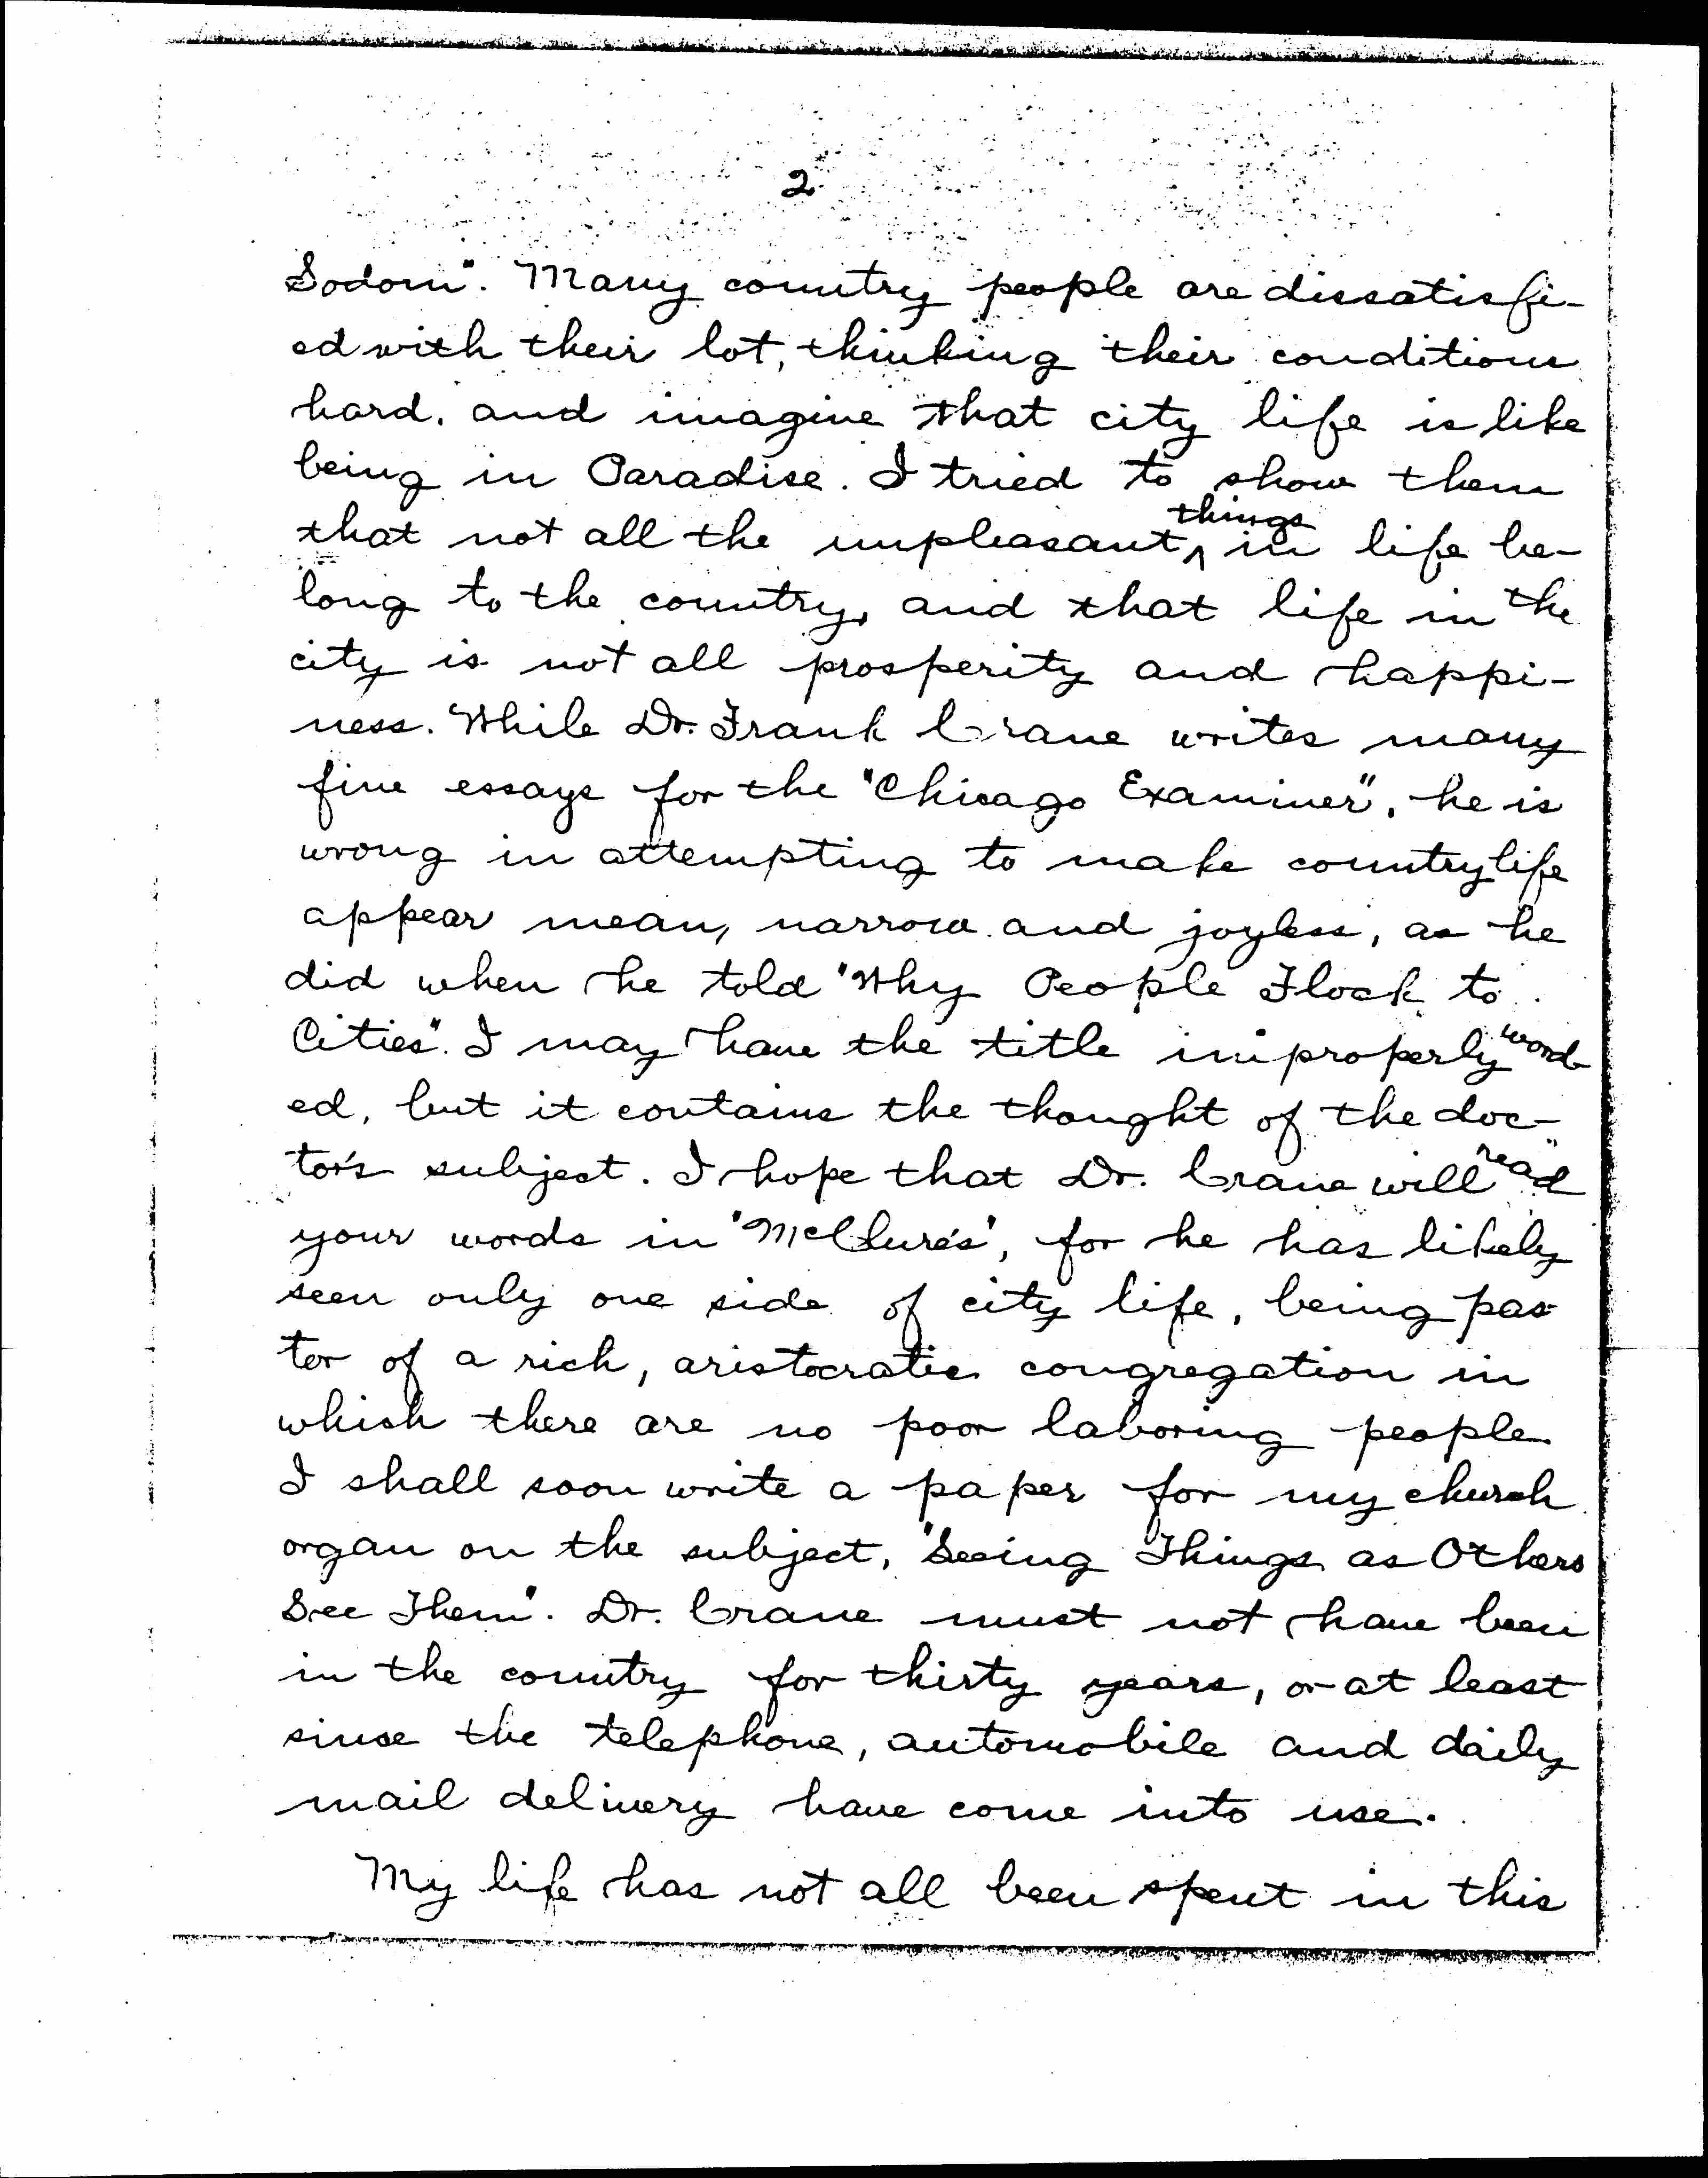 2
Sodom". Many country people are dissatisfi-
ed with their lot, thinking their conditions
hard, and imagine that city life is like
being in Paradise. I tried to show them
that not all the unpleasant things in life be-
long to the country, and that life in the
city is not all prosperity and happi-
ness. While Dr. Frank Crane writes many
fine essays for the "Chicago Examiner", he is
wrong in attempting to make country life
appear mean, narrow and joyless, as he
did when he told "Why People Flock to
Cities". I may have the title improperly word-
ed, but it contains the thought of the doc-
tor's subject. I hope that Dr. Crane will read
your words in "McClure's", for he has likely
seen only one side of city life, being pas-
tor of a rich, aristocratic congregation in
which there are no poor laboring people.
I shall soon write a paper for my church
organ on the subject, "Seeing Things as Others
See Them". Dr. Crane must not have been
in the country for thirty years, or at least
since the telephone, automobile and daily
mail delivery have come into use.
My life has not all been spent in this